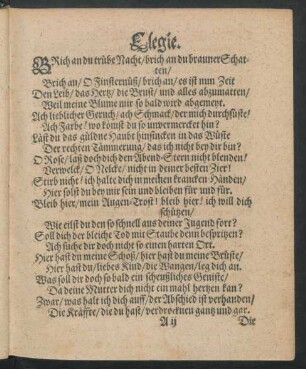 Elegie.
BRich an du trübe Nacht/ brich an du brauner Schat-
ten/
Brich an/ O Finsternüß/ brich an/ es ist nun Zeit
Den Leib/ das Hertz/ die Brust/ und alles abzumatten/
Weil meine Blume mir so bald wird abgemeyt.
Ach lieblicher Geruch/ ach Schmack/ der mich durchsüste/
Ach Farbe/ wo komst du so unvermercket hin?
Läst du das güldne Haubt hinsincken in das Wüste
Der rechten Tämmerung/ das ich nicht bey dir bin?
O Rose/ laß doch dich den Abend-Stern nicht blenden/
Verwelck/ O Nelcke/ nicht in deiner besten Zier!
Stirb nicht/ ich halte dich in meinen krancken Händen/
Hier solst du bey mir sein und bleiben für und für.
Bleib hier/ mein Augen-Trost! bleib hier! ich will dich
schützen/
Wie eilst du den so schnell aus deiner Jugend fort?
Soll dich der bleiche Tod mit Staube denn bespritzen?
Ach suche dir doch nicht so einen harten Ort.
Hier hast du meine Schoß/ hier hast du meine Brüste/
Hier hast du/ liebes Kind/ die Wangen/ leg dich an.
Was soll dir doch so bald ein scheußliches Geniste/
Da deine Mutter dich nicht ein mahl hertzen kan?
Zwar/ was halt ich dich auff/ der Abschied ist verhanden/
Die Kräffte/ die du hast/ verdrocknen gantz und gar.
A ij Die